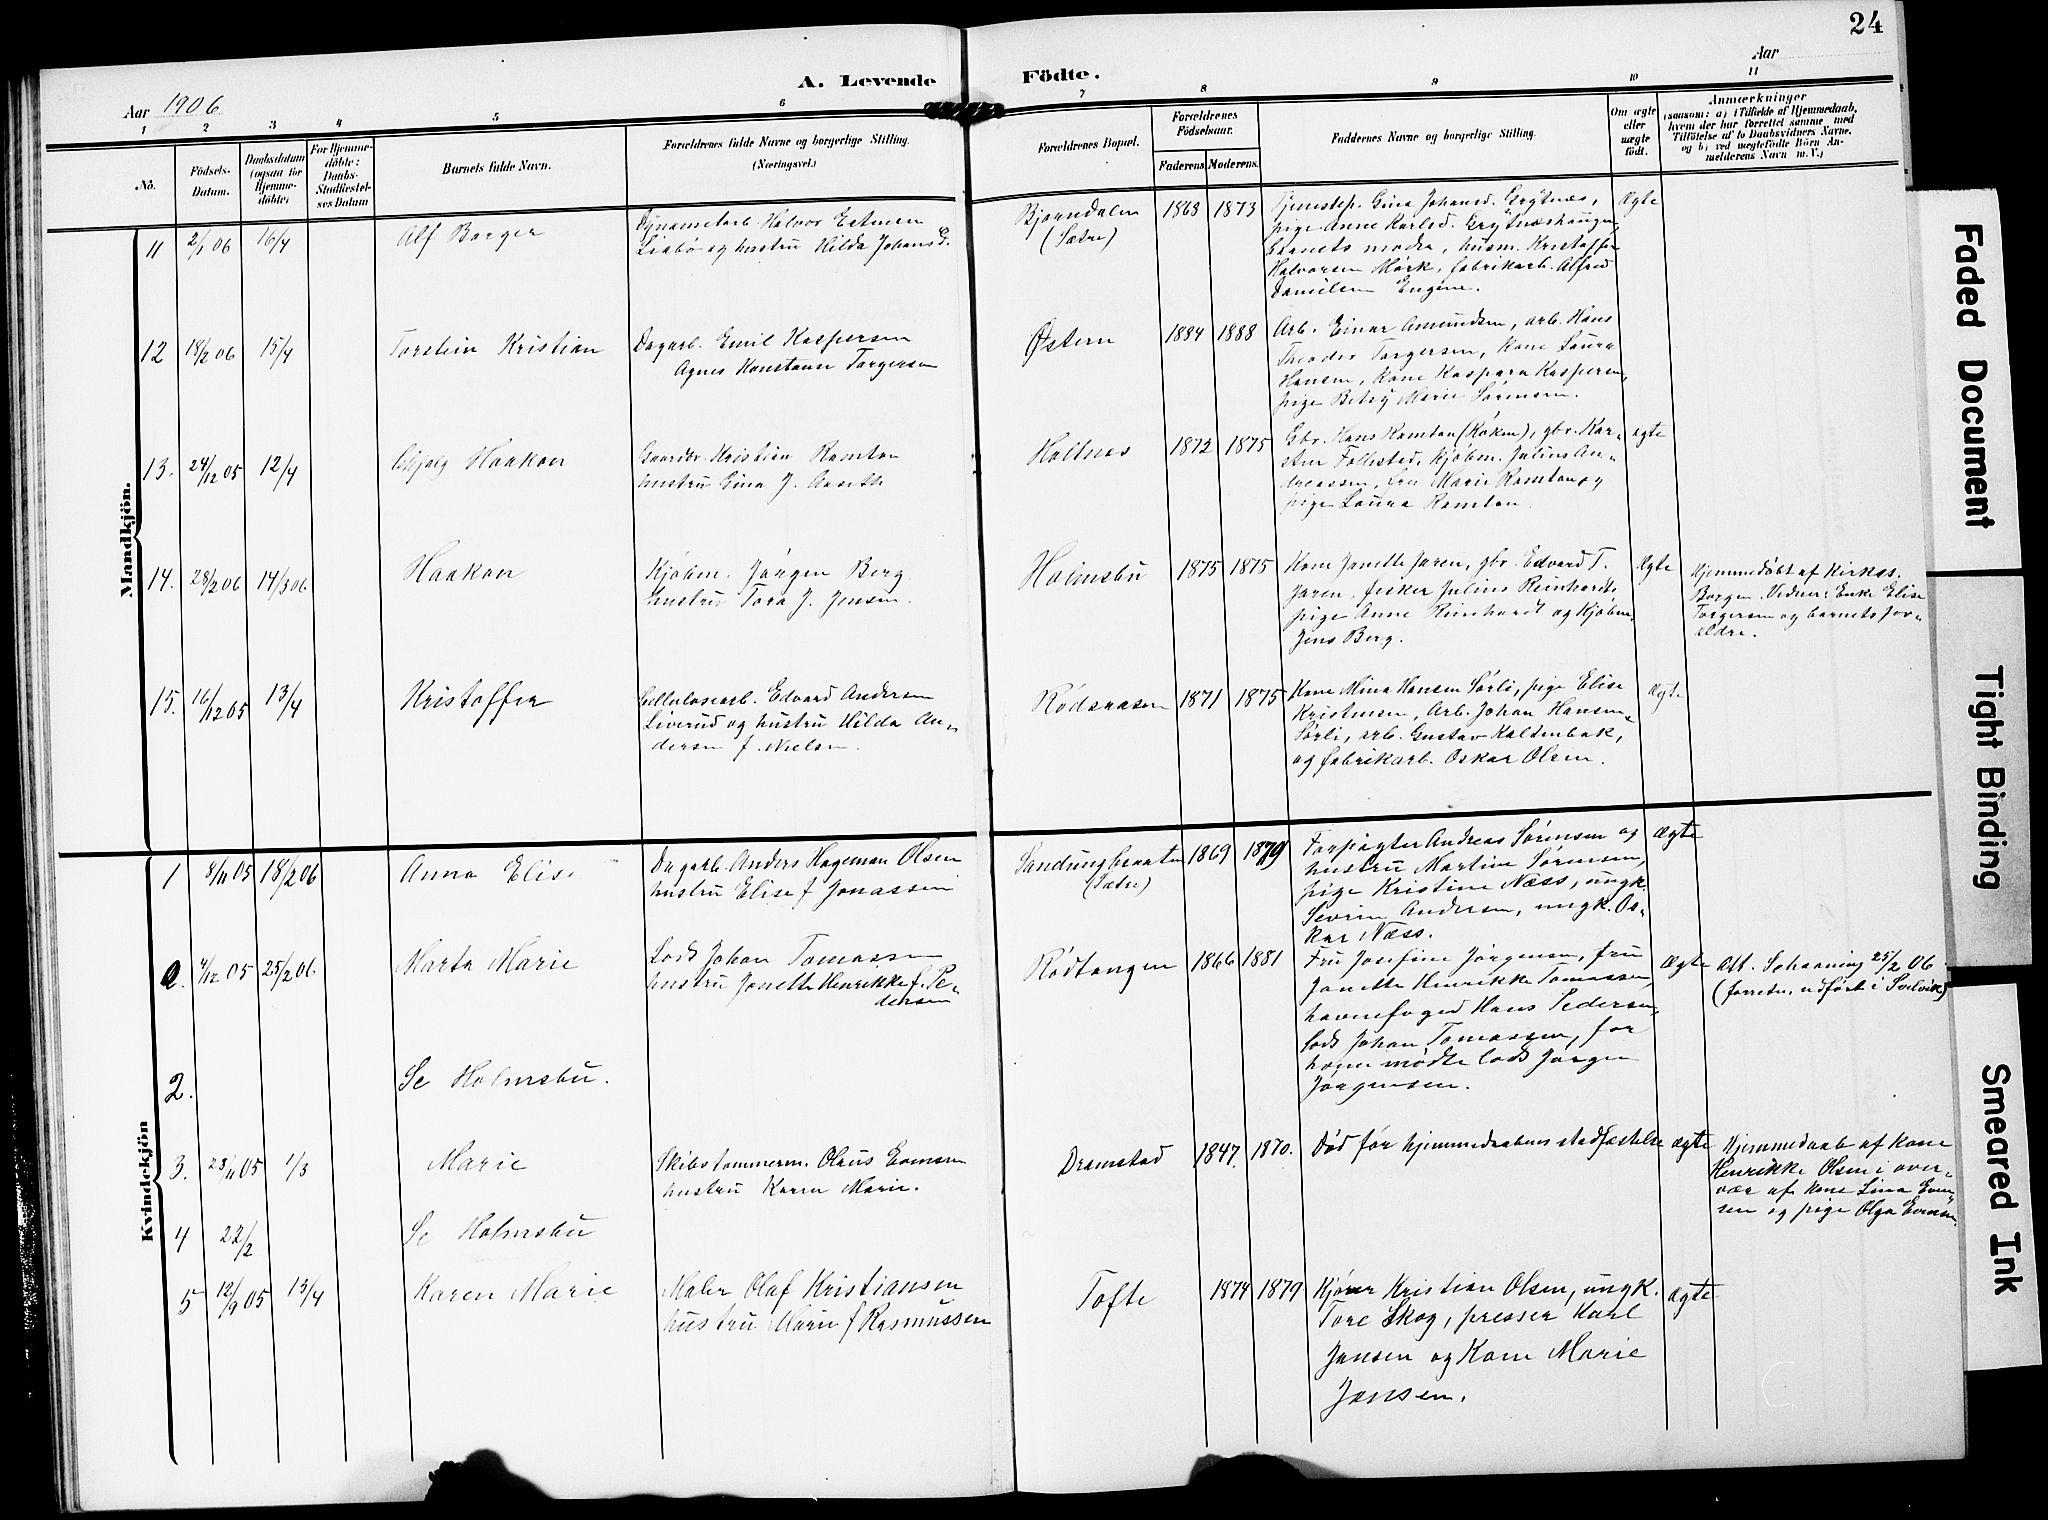 24
A. Levende Födte.
Aar 1906
Aar
1 2 3 4 5 6 7 8 9 10 11
No.
Födsels-
Datum.
Daabsdatum
(ogsaa for
Hjemme-
döbte)
For Hjemme-
döbte:
Daabs-
Stadfæstel-
ses Datum
Barnets fulde Navn.
Forældrenes fulde Navne og borgerlige Stilling.
(Næringsvei.)
Forældrenes Bopæl.
Forældrenes
Födselsaar.
Faderens. Moderens.
Faddernes Navne og borgerlige Stilling.
Om ægte
eller
uægte
födt.
Anmærkninger
(saasom: a) i Tilfælde af Hjemmedaab,
hvem der har forrettet samme med
Tilföielse af to Daabsvidners Navne.
og b) ved uægtefödte Börn An-
melderens Navn m. V.)
Mandkjön.
11 2/1 06 16/4 Alf Borger
Dynamitarb. Halvor Estensen
Liabö og hustru Hilda Johansd.
Bjørndalen
(Sætre)
1868 1873
Tjenstep. Gina Johansd. Grytnæs,
pige Anne Karlsd. Grytnæshaugen,
barnets moder, husm. Kristoffer
Halvorsen Mørk, fabrikarb. Alfred
Danielsen Engene.
Ægte
12 18/2 06 15/4 Torstein Kristian
Dagarb. Emil Kaspersen
Agnes Konstanse Torgersen
Østern
1884 1888
Arb. Einar Amundsen, arb. Hans
Theodor Torgersen, Kone Laura
Hansen, Kone Kaspara Kaspersen,
pige Betsy Marie Sørensen.
13. 24/12 05 12/4 Haakon
Gaardbr. Kristian Ramton
hustru Gina J. Aaseth
Holtnes
1872 1875
Gbr. Hans Ramton (Røken), gbr. Kar-
sten Follestad, kjøbm. Julius An-
dreassen, fru Marie Ramton og
pige Laura Ramton.
ægte
14. 28/2 06 14/3 06 Haakon
Kjøbm. Jørgen Berg
hustru Tora J. Jensen.
Holmsbu
1875 1875
Kone Janette Jaren, gbr. Edvard T.
Jaren, fisker Julius Reinhardt,
pige Anne Reinhardt og Kjøbm.
Jens Berg.
Ægte
Hjemmedøbt af Kirkes.
Borgen. Vidner: Enke Elise
Torgersen og barnets for-
ældre.
15. 16/12 05 13/4 Kristoffer
Cellulosearb. Edvard Andersen
Liverud og hustru Hilda An-
dersen f. Nielsen.
Rødsaasen
1871 1875
Kone Mina Hansen Sørli, pige Elise
Kristensen, Arb. Johan Hansen
Sørli, arb. Gustav Kaldenbak,
og fabrikarb. Oskar Olsen.
Ægte
Kvindekjön
1 8/11 05 18/2 06 Anna Elise
Dagarb. Anders Hageman Olsen
hustru Elise f Jonassen
Sandungbraaten
(Sætre)
1869 1879
Forpagter Andreas Sørensen og
hustru Martine Sørensen,
pige Kristine Næss, ungk.
Sevrin Andersen, ungk. Os-
kar Næss.
Ægte
2. 4/12 05 25/2 06 Marta Marie
Lods Johan Tomassen
hustru Janette Henrikke f. Pe-
dersen
Rødtangen
1866 1881
Fru Josefine Jørgensen, fru
Janette Henrikke Tomassen,
havnefoged Hans Pedersen,
lods Johan Tomassen, for
ham mødte lods Jørgen
Jørgensen.
Ægte
Att. Schaaning 25/2 06
(forretn. udført i Svelvik)
2. Se Holmsbu.
3. 23/11 05 1/3 Marie
Skibstømmerm. Olaus Evensen
hustru Karen Marie.
Dramstad
1847. 1870.
Død før hjemmedaabens stadfæstelse
ægte
Hjemmedaab af Kone
Henrikke Olsen i over-
vær af kone Lina Even-
sen og pige Olga Evensen.
4 22/2 Se Holmsbu
5 12/9 05 13/4 Karen Marie
Maler Olaf Kristiansen
hustru Marie f Rasmussen
Tofte
1874 1879
Kjører Kristian Olsen, ungk.
Tore Skog, presser Karl
Jansen og Kone Marie
Jansen.
ægte
Faded Document
Tight Binding
Smeared Ink